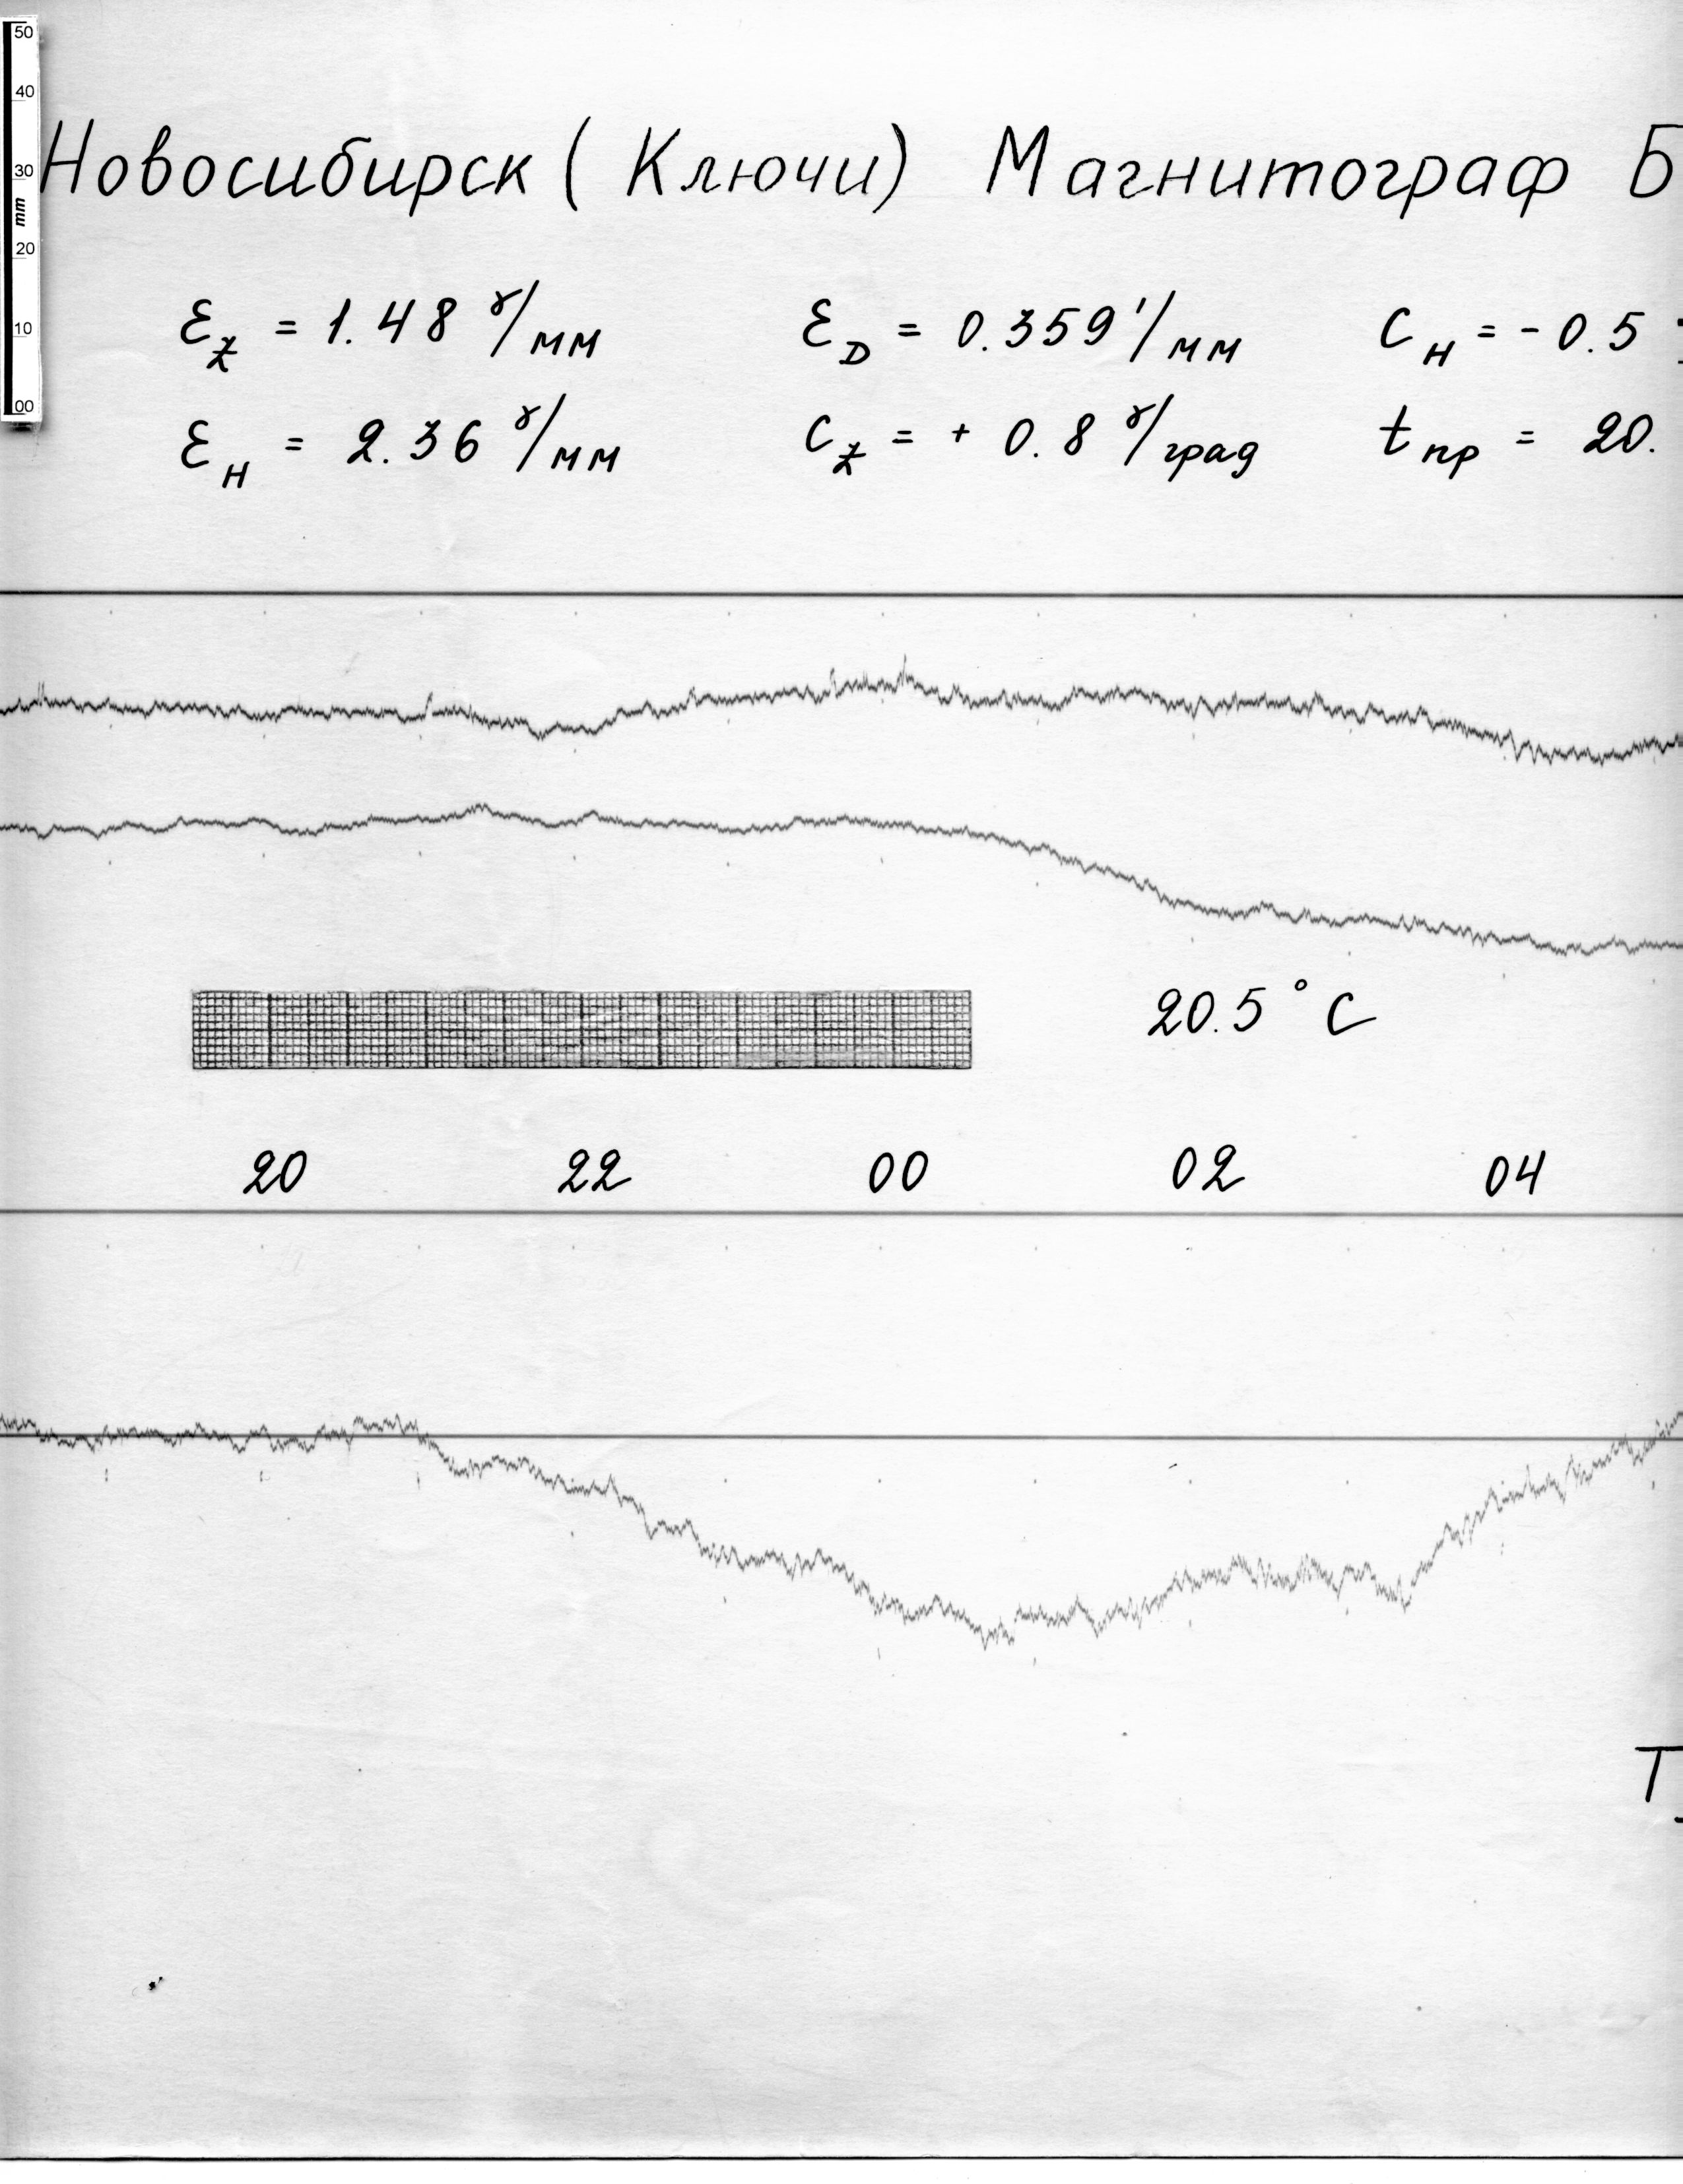 50
40
30
mm
20
10
00
Новосибирск ( Ключи) Магнитограф Б
Ɛ_Z = 1.48 γ/мм Ɛ_D = 0.359'/мм C_H = - 0.5
Ɛ_H = 2.36 γ/мм C_Z = + 0.8 γ/град t_пр = 20.
20.5° C
20 22 00 02 04
Т